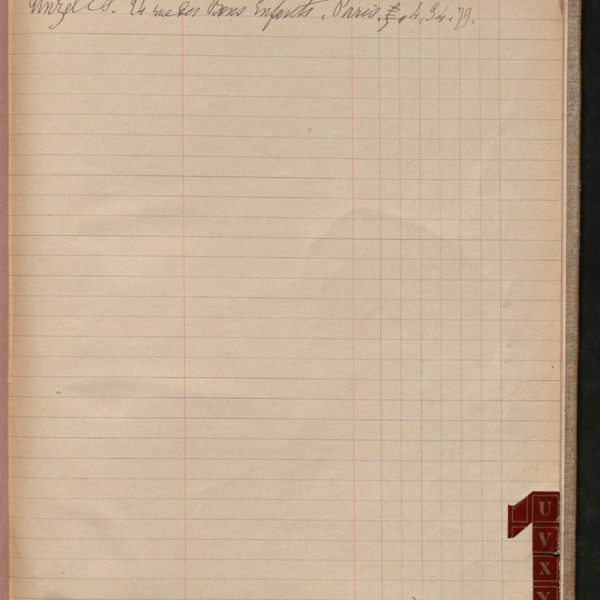 Unzel & Co. 24 rue des Bons Enfants. Paris. 4.34.79.
U
V
X
Y